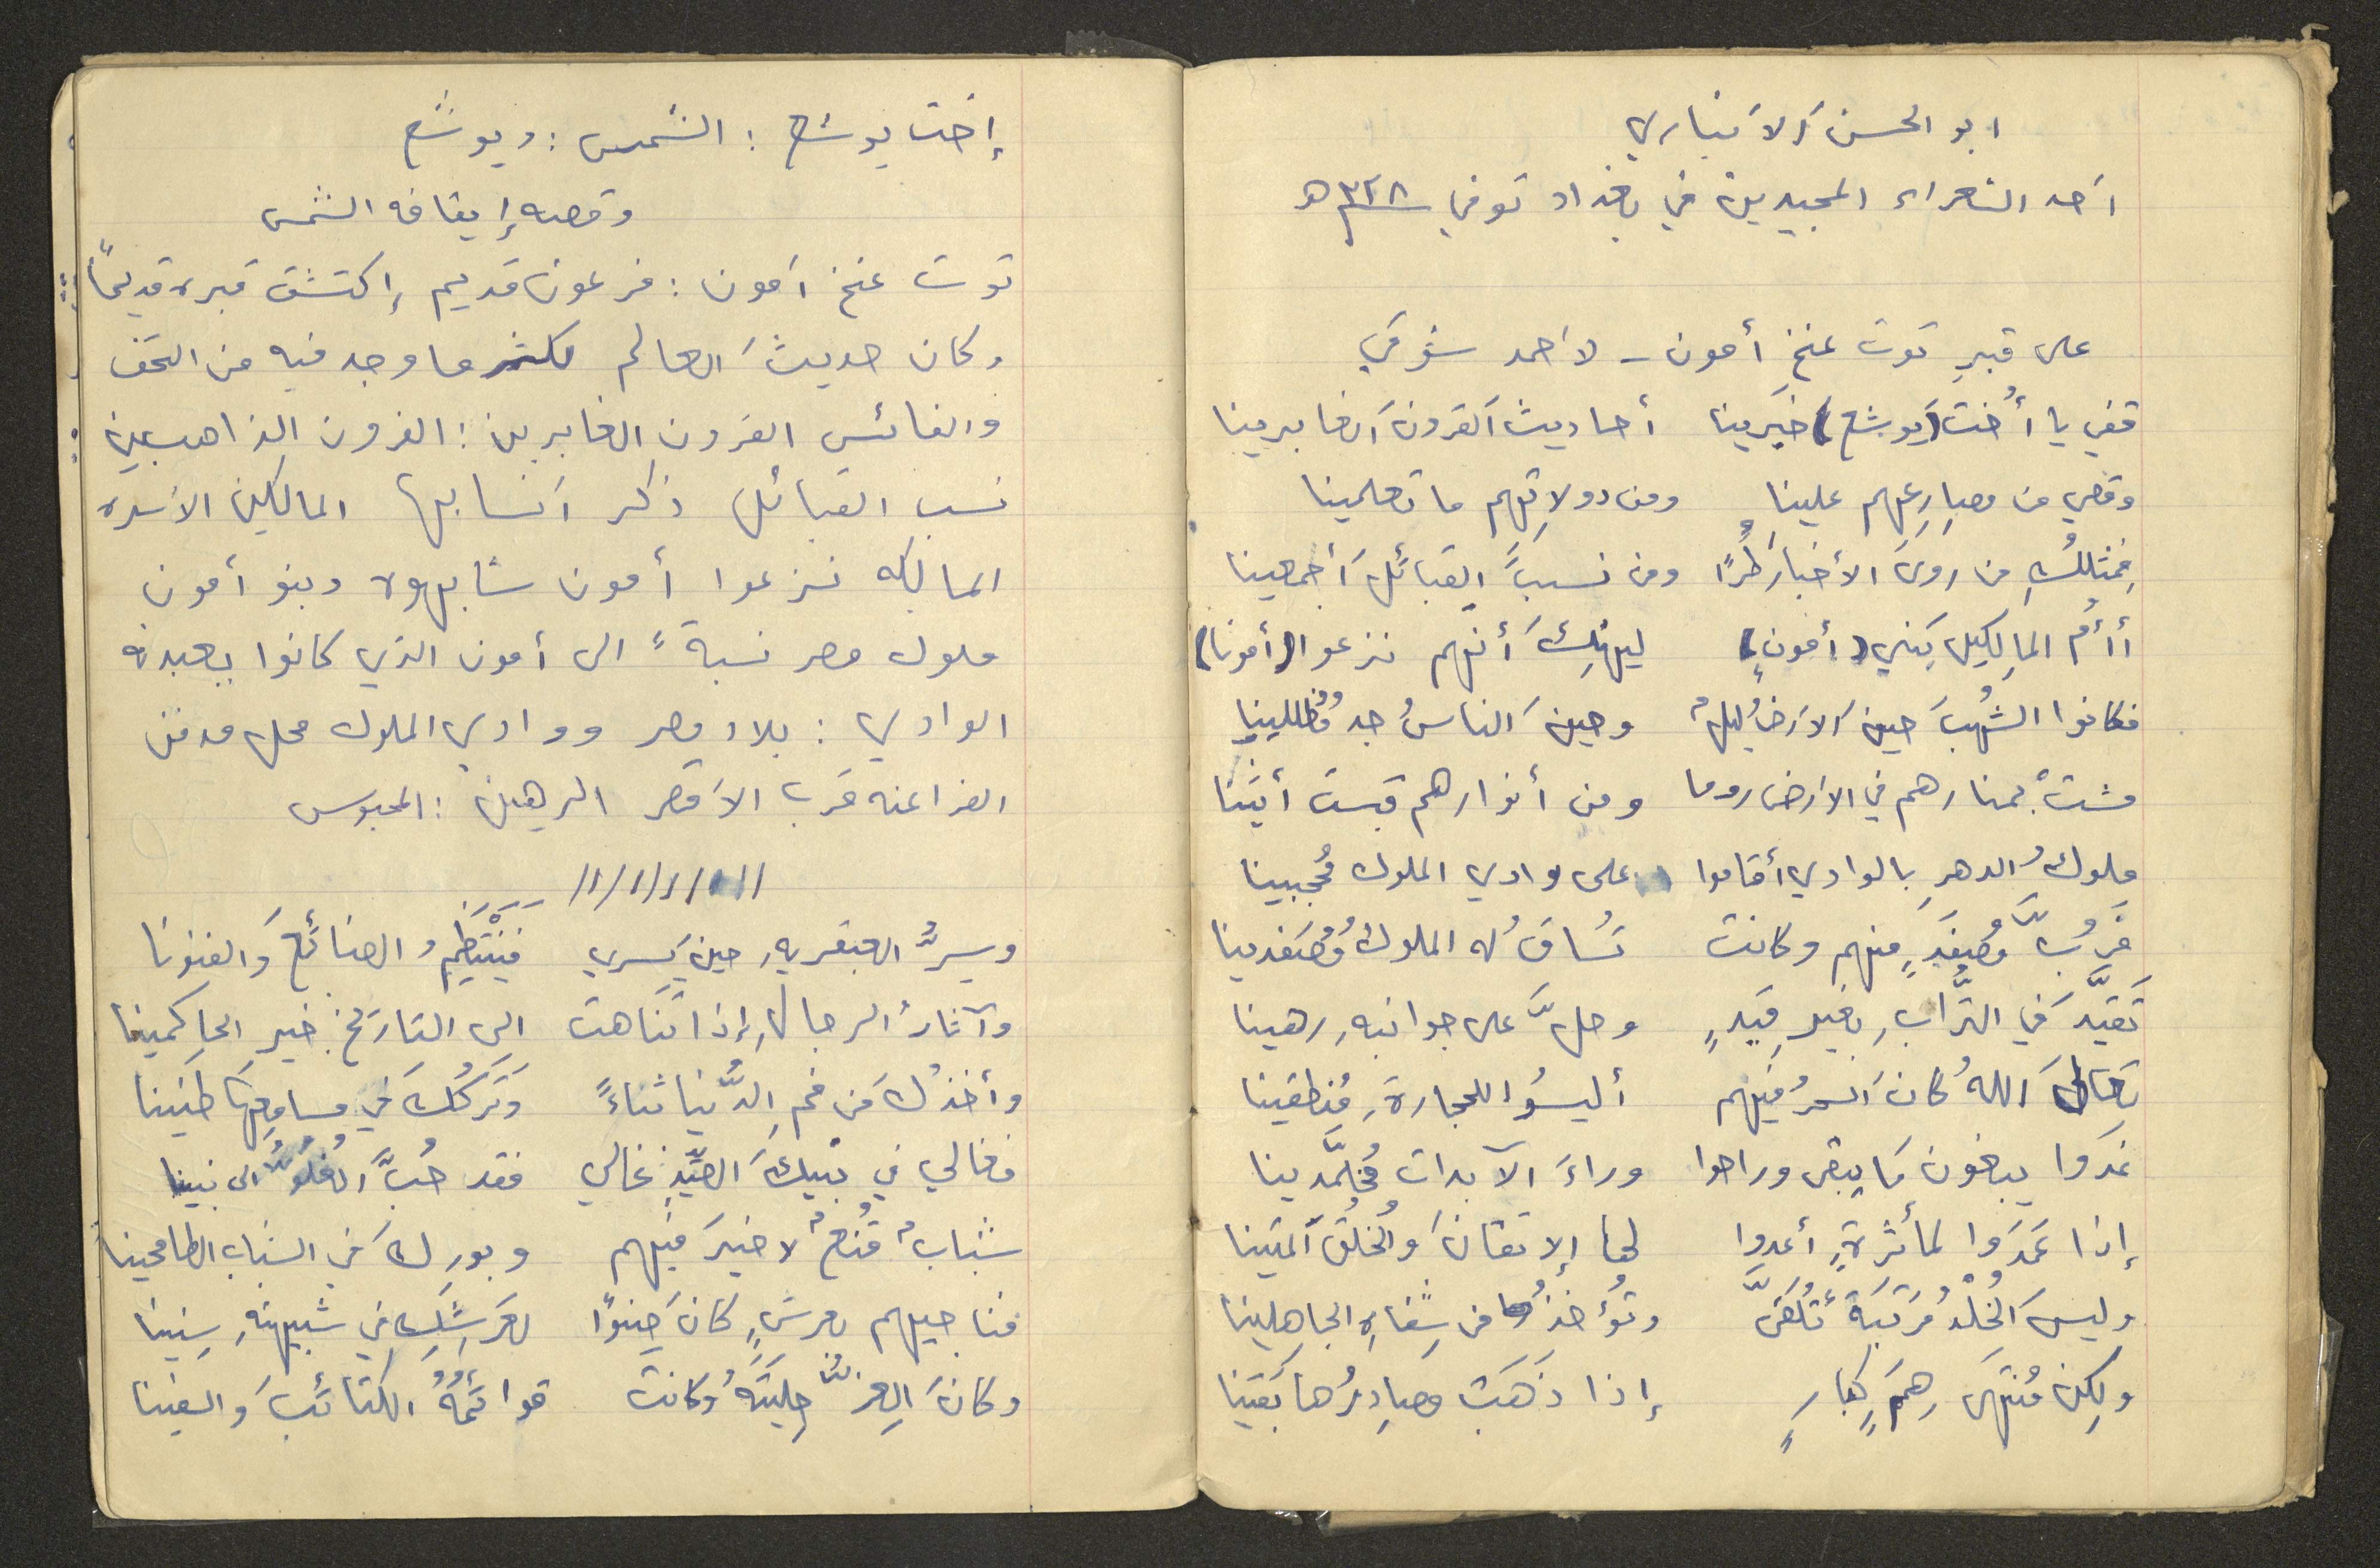 ابو الحسن الانباري
احد الشعراء المجيدين في بغداد توفي ٣٢٨هـ
على قبرِ توت عنخ أمون – لاحمد شوقي
قفي يا أُخت (يوشع) خبّرينا أحاديث القرون الغابرينا
وقصي من مصارعهم علينا ومن دولاتهم ما تعلمينا
فمثلكِ من روى الأخبارَ طُرًا ومن نسبَ القبائل أجمعينا
أأم المالكين بني (أمونٍ) ليهنكِ أنهم نزعوا (أمونا)
فكانوا الشُهبَ حين الارضُ ليلٌ وحين الناسُ جد مُضللينا
مشتْ بمنارهم في الارض روما ومن أنوارهم قبست أثينا
ملوكُ الدهرِ بالوادي أقاموا على وادي الملوك مُحجبينا
فرُبّ مُصفّدٍ منهم وكانت تُساقُ له الملوكُ مُصفدينا
تقيّد في التُّرابِ بغير قيدٍ وحلّ على جوانبهِ رهينا
تعالى اللهُ كان السحرُ فيهم أليسُوا للحجارةِ مُنطقينا
غدَوا يبغون ما يبقى وراحوا وراءَ الآبدات مُخلّدينا
إذا عمَدوا لمأثرةٍ أعدوا لها الإتقانَ والخلُقَ المتينا
وليسَ الخُلدُ مرتبةً تُلقّى وتُؤخذُ من شفاهِ الجاهلينا
ولكن مُنتهى هِمَمٍ كِبارٍ إذا ذهَبت مصادِرُها بَقينا
إخت يوشع : الشمس : ويوشع
وقصه إيقافه الشمس
توت عنخ أمون : فرعون قديم إكتشف قبره قديمًا
وكان حديثَ العالم لكثر ما وجد فيه من التحف
والنفائس القرون الغابرين : القرون الذاهبين
نسب القبائل ذكر انسابها المالكين الاسره
المالكه نزعوا أمون شابهوه وبنو أمون
ملوك مصر نسبةً الى أمون الذي كانوا يعبدونه
الوادي : بلاد مصر ووادي الملوك محل مدفن
الفراعنه قرب الاقصر الرهين : المحبوس
وسِرُّ العبقريهِ حين يَسري فينتظِمُ الصنائعَ والفنونا
وآثارُ الرجالِ إذا تناهت الى التاريخِ خيرِ الحاكمينا
وأخذُكَ من فمِ الدُّنيا ثناءً وتركُكَ في مسامعِها طنينا
فغالي في بنيكَ الصِّيدِ غالي فقد حُبَّ الغُلُوُّ الى بنينا
شبابٌ قُنعٌ لا خيرَ فيهم وبوركَ في الشباب الطامحينا
فناجيهم بعرشٍ كان صِنوًا لعرشِكِ في شبيبتهِ سنينا
وكانَ العزُّ حِليتَهُ وكانت قوائمُهُ الكتائبَ والسفينا